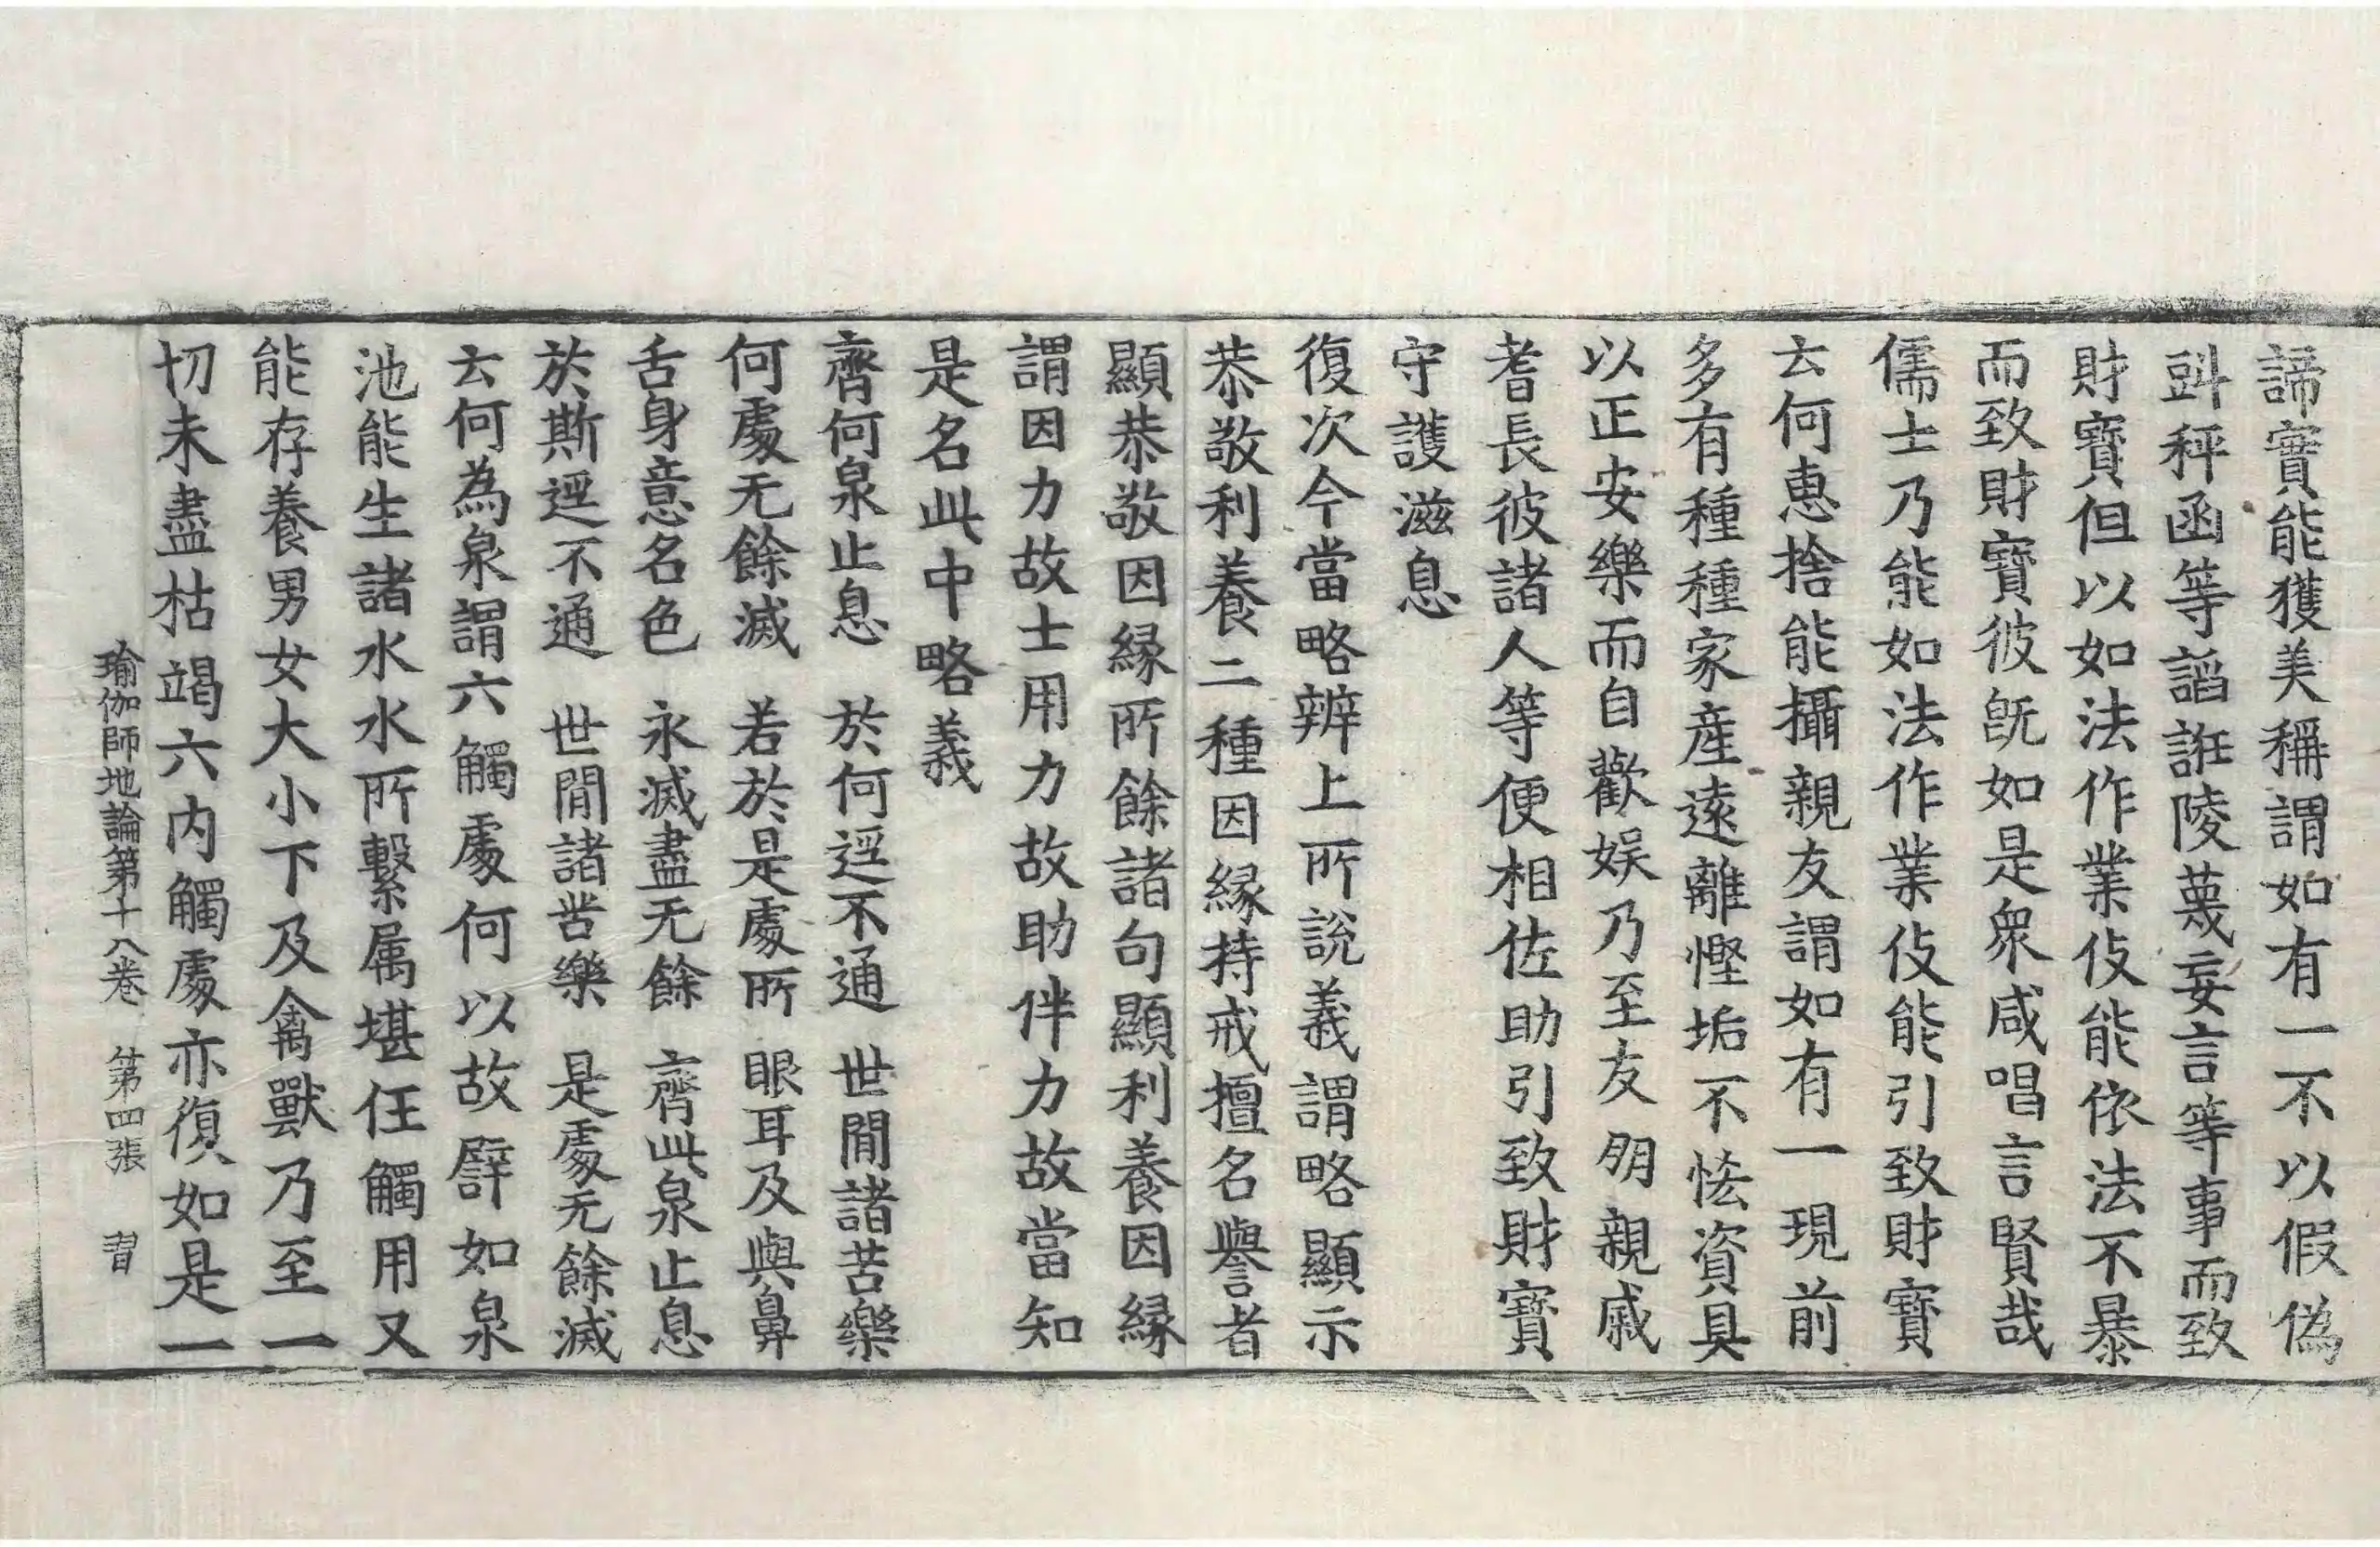 諦實能獲美稱謂如有一不以假偽
㪷秤函等謟誑陵蔑妄言等事而致
財寶但以如法作業伎能依法不暴
而致財寶彼既如是衆咸唱言賢哉
儒士乃能如法作業伎能引致財寶
云何恵捨能攝親友謂如有一現前
多有種種家産遠離慳垢不恡資具
以正安樂而自歡娱乃至友朋親戚
耆長彼諸人等便相佐助引致財寶
守護滋息
復次今當略辨上所說義謂略顯示
恭敬利養二種因縁持戒擅名譽者
顯恭敬因縁所餘諸句顯利養因縁
謂因力故士用力故助伴力故當知
是名此中略義
齊何泉止息　於何逕不通　世間諸苦樂
何處无餘滅　若於是處所　眼耳及與鼻
舌身意名色　永滅盡无餘　齊此泉止息
於斯逕不通　世間諸苦樂　是處无餘滅
云何為泉謂六觸處何以故譬如泉
池能生諸水水所繫属堪任觸用又
能存養男女大小下及禽獸乃至一
切未盡枯竭六内觸處亦復如是一
瑜伽師地論第十八卷　第四張　習